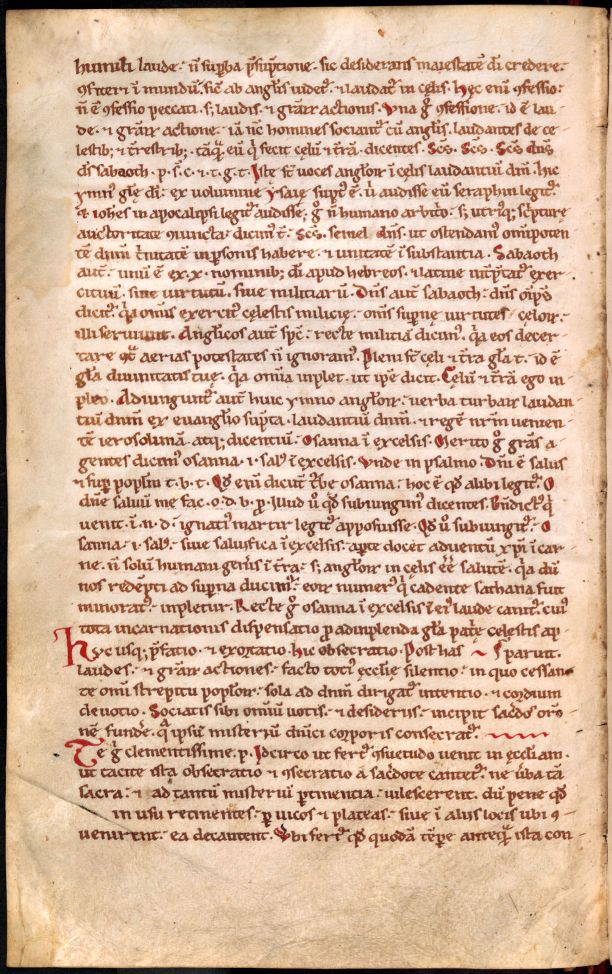 humili laude. n̄ suꝑba p̄suptione. sic desiderans maiestatē dī credere.
ꝯfiteri ī mundū. sic ab anglis uidet᷑. ⁊ laudat᷑ in celis. hęc enī ꝯfessio.
n̄ ē ꝯfessio peccati. s; laudis. ⁊ gr̄aꝝ actionis. Vna g̊ ꝯfessione. id ē lau-
de. ⁊ gr̄aꝝ actione. iā nc̄ homines sociant᷑ cū angłis. laudantes de ce-
lestib; ⁊ t̄restrib;. tāq̄ eū q̇ fecit celū ⁊ t̄rā. dicentes. Scs̄. Scs̄. Scs̄ dn̄s
ds̄ sabaoth. p. s̄. c. ⁊. t. g. t. Iste st̄ uoces angłoꝝ ī celis laudantiū dn̄m. hic
ymn᷒ głę dī. ex uolumine ysaię supt᷒ ē. ū audisse eū seraphin legit᷑.
⁊ iohes in apocalipsi legit᷑ audisse. g̊ n̄ humano arbit̊o. s; utriq; sc̄pturę
auctoritate ꝯiuncta. dicim᷒ t̄. Scs̄. semel dn̄s. ut ostendam᷒ om̄ipoten
tē dnm̄ t̄nitatē in ꝑsonis habere. ⁊ unitatē ī substantia. Sabaoth
aut̄. unū ē ex. x. nominib; dī apud hebreos. ⁊ latine int̄ptat᷑ exer-
cituū. siue uirtutū. siue militiarū. Dn̄s aut̄ sabaoth. dn̄s om̄ps
dicit᷑. q̇a omīs exercit᷒ celestis milicię. om̄s suꝑnę uirtutes celoꝝ.
illi seruiunt. Anglicos aut̄ sp̄c. recte militiā dicim᷒. q̇a eos decer-
tare ꝯt̄ aerias potestates n̄ ignoram᷒. Pleni st̄ cęli ⁊ t̄ra gła t. id ē
gła diuinitatis tuę. q̇a om̄ia inplet. ut ip̄e dicit. Cęlū ⁊ t̄rā ego in
pleo. Adiungunt᷑ aut̄ huic ymno angłoꝝ. uerba turbaꝝ laudan
tiū dnm̄ ex euangłio sup̄ta. laudantiū dnm̄. ⁊ regē nr̄m uenien-
tē ierosolimā. atq; dicentiū. Osanna ī excelsis. Merito g̊ gr̄as a-
gentes dicim᷒ osanna. ⁊ sał᷒ ī excelsis. Vnde in psalmo. Dn̄i ē salus
⁊ suꝑ popłm t. b. t. Qd̄ enī dicūt t̄be osanna. hoc ē qd̄ alibi legit᷑. O
dn̄e saluū me fac. o. d. b. ꝓ. Illud ū qd̄ subiungim᷒ dicentes. Bn̄dict᷒ q̇
uenit. ī. n. d. ignati᷒ martir legit᷑ apposuisse. Qd̄ ū subiungit᷑. O
sanna. ⁊ sał᷒. siue saluifica ī excelsis. aꝑte docet aduentū xp̄i ī car
ne. n̄ solū humani gen̄is ī t̄ra. s; angłoꝝ in celis ēē salutē. q̇a dū
nos redēpti ad suꝑna ducim᷑. eoꝝ numer᷒ q̇ cadente sathana fuit
minorat᷒. inpletur. Recte g̊ osanna ī excelsis ī ei᷒ laude cantat᷑. cui᷒
tota incarnationis dispensatio ꝓ adinplenda gła pat̄ę celestis ap-
Hyc usq; p̄fatio. ⁊ exortatio. hic obsecratio. Post has ~ ꝑaruit.
laudes. ⁊ gr̄aꝝ actiones. facto toti᷒ ęcclię silentio. in quo cessan-
te omī streptitu popłoꝝ. sola ad dnm̄ dirigat᷑ intentio. ⁊ cordium
deuotio. Sociatis sibi omniū uotis. ⁊ desideriis. incipit sacdos or̄o-
nē fund̄e. q̇ ipsū misteriū dn̄ici corporis consecrat᷑.
Te g̊ clementissime. p. Idcirco ut fert᷑ ꝯsuetudo uenit in ęccłiam.
ut tacite ista obsecratio ⁊ ꝯsecratio a sac̄dote cantet᷑. ne ūba tā
sacra. ⁊ ad tantū misteriū ꝑtinencia uilescerent. dū pene qd̄
in usu retinentes. ꝑ uicos ⁊ plateas. siue ī aliis locis ubi ꝯ-
uenirent. ea decantent. Vbi fert᷑ qd̄ quodā tēꝑe anteq̄ ista con-